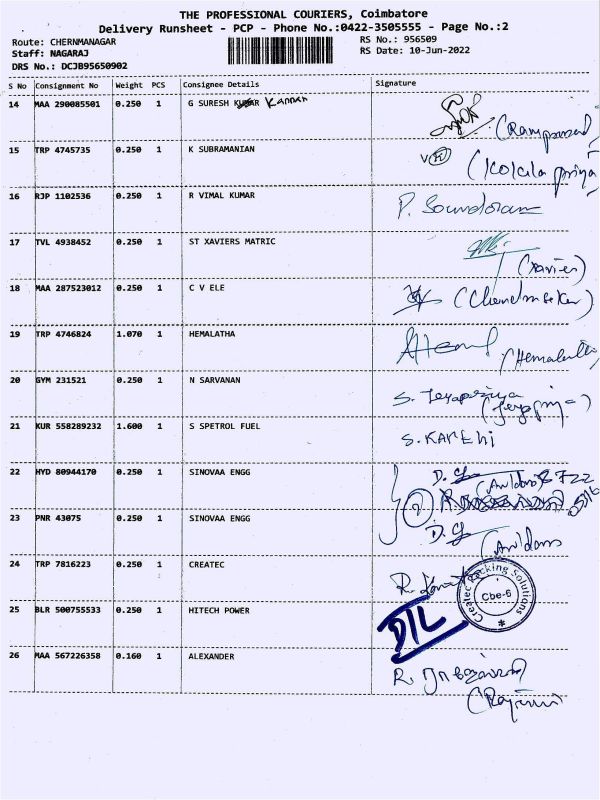 THE PROFESSIONAL COURIERS, Coimbatore
Delivery Runsheet - PCP - Phone No.:0422-3505555 - Page No.:2
Route: CHERNMANAGAR RS No.: 956509
Staff: NAGARAJ RS Date: 10-Jun-2022
DRS No.: DCJB95650902
S No Consignment No Weight PCS Consignee Details Signature
14 MAA 290085501 0.250 1 G SURESH KUMAR Kannan
(Ramprasad)
15 TRP 4745735 0.250 1 K SUBRAMANIAN
(Kokila priya)
16 RJP 1102536 0.250 1 R VIMAL KUMAR P. Soundoram
17 TVL 4938452 0.250 1 ST XAVIERS MATRIC
(Xavier)
18 MAA 287523012 0.250 1 C V ELE (Chandrasekar)
19 TRP 4746824 1.070 1 HEMALATHA
(Hemalatha)
20 GYM 231521 0.250 1 N SARVANAN S. Jeyapriya
(Jeyapriya)
21 KUR 558289232 1.600 1 S SPETROL FUEL S. KAREHi
22 HYD 80944170 0.250 1 SINOVAA ENGG
23 PNR 43075 0.250 1 SINOVAA ENGG
24 TRP 7816223 0.250 1 CREATEC
Createc Packing Solutions
Cbe-6
25 BLR 500755533 0.250 1 HITECH POWER D/L
26 MAA 567226358 0.160 1 ALEXANDER